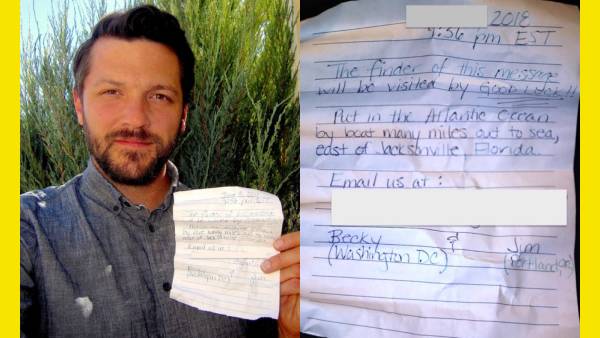 2018
9:56 pm EST
The finder of this message
will be visited by GOOD LUCK!!
Put in the Atlantic Ocean
by boat many miles out to sea,
east of Jacksonville, Florida.
Email us at :
Becky & Jim
(Washington DC) (Portland,